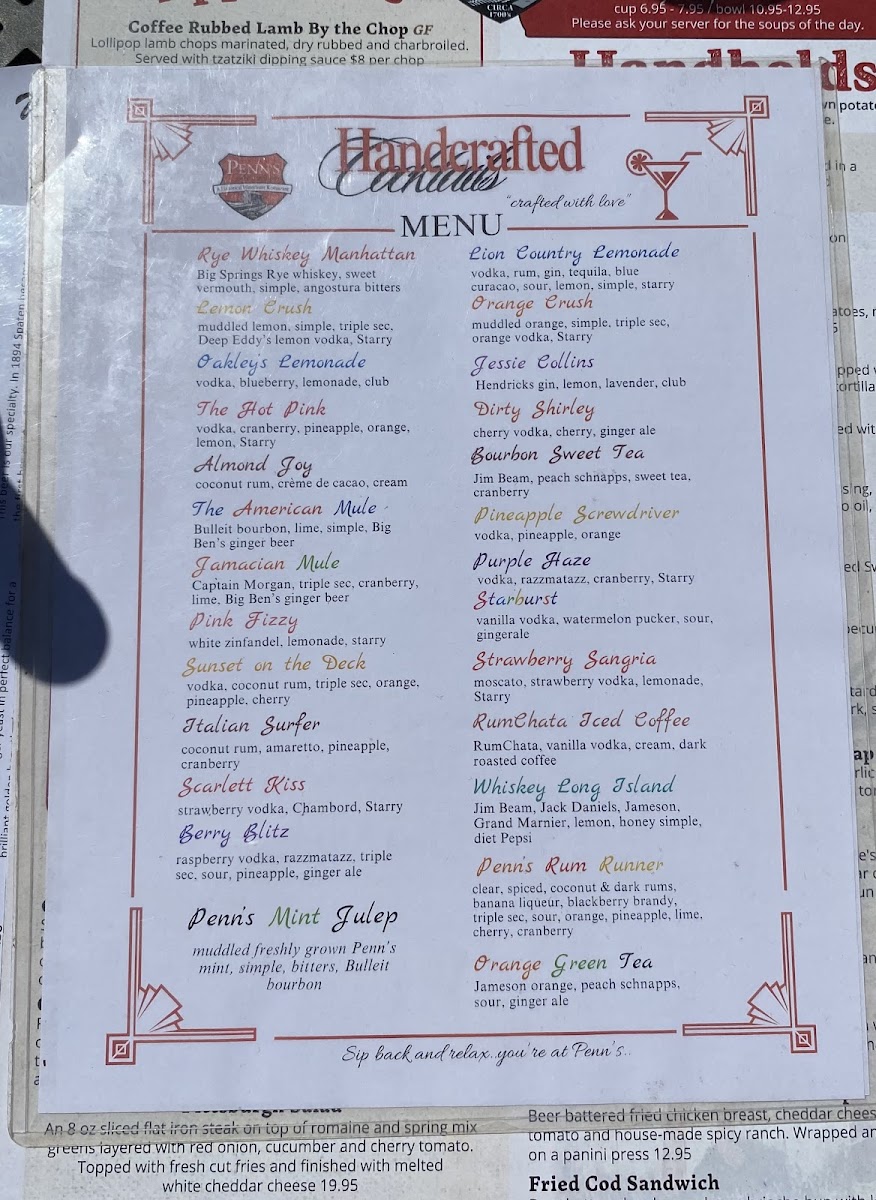 Coffee Rubbed Lamb By the Chop GF
Lollipop lamb chops marinated, dry rubbed and charbroiled.
Served with tzatziki dipping sauce $8 per chop
CIRCA
1700's
cup 6.95 - 7.95 / bowl 10.95-12.95
Please ask your server for the soups of the day.
Handhelds
PENN'S
Handcrafted
Cocktails
"crafted with love"
MENU
Rye Whiskey Manhattan
Big Springs Rye whiskey, sweet
vermouth, simple, angostura bitters
Lemon Crush
muddled lemon, simple, triple sec,
Deep Eddy's lemon vodka, Starry
Oakley's Lemonade
vodka, blueberry, lemonade, club
The Hot Pink
vodka, cranberry, pineapple, orange,
lemon, Starry
Almond Joy
coconut rum, crème de cacao, cream
The American Mule
Bulleit bourbon, lime, simple, Big
Ben's ginger beer
Jamacian Mule
Captain Morgan, triple sec, cranberry,
lime, Big Ben's ginger beer
Pink Fizzy
white zinfandel, lemonade, starry
Sunset on the Deck
vodka, coconut rum, triple sec, orange,
pineapple, cherry
Italian Surfer
coconut rum, amaretto, pineapple,
cranberry
Scarlett Kiss
strawberry vodka, Chambord, Starry
Berry Blitz
raspberry vodka, razzmatazz, triple
sec, sour, pineapple, ginger ale
Penn's Mint Julep
muddled freshly grown Penn's
mint, simple, bitters, Bulleit
bourbon
Lion Country Lemonade
vodka, rum, gin, tequila, blue
curacao, sour, lemon, simple, starry
Orange Crush
muddled orange, simple, triple sec,
orange vodka, Starry
Jessie Collins
Hendricks gin, lemon, lavender, club
Dirty Shirley
cherry vodka, cherry, ginger ale
Bourbon Sweet Tea
Jim Beam, peach schnapps, sweet tea,
cranberry
Pineapple Screwdriver
vodka, pineapple, orange
Purple Haze
vodka, razzmatazz, cranberry, Starry
Starburst
vanilla vodka, watermelon pucker, sour,
gingerale
Strawberry Sangria
moscato, strawberry vodka, lemonade,
Starry
RumChata Iced Coffee
RumChata, vanilla vodka, cream, dark
roasted coffee
Whiskey Long Island
Jim Beam, Jack Daniels, Jameson,
Grand Marnier, lemon, honey simple,
diet Pepsi
Penn's Rum Runner
clear, spiced, coconut & dark rums,
banana liqueur, blackberry brandy,
triple sec, sour, orange, pineapple, lime,
cherry, cranberry
Orange Green Tea
Jameson orange, peach schnapps,
sour, ginger ale
Sip back and relax..you're at Penn's..
An 8 oz sliced flat iron steak on top of romaine and spring mix
greens layered with red onion, cucumber and cherry tomato.
Topped with fresh cut fries and finished with melted
white cheddar cheese 19.95
Beer battered fried chicken breast, cheddar
tomato and house-made spicy ranch. Wrapped
on a panini press 12.95
Fried Cod Sandwich